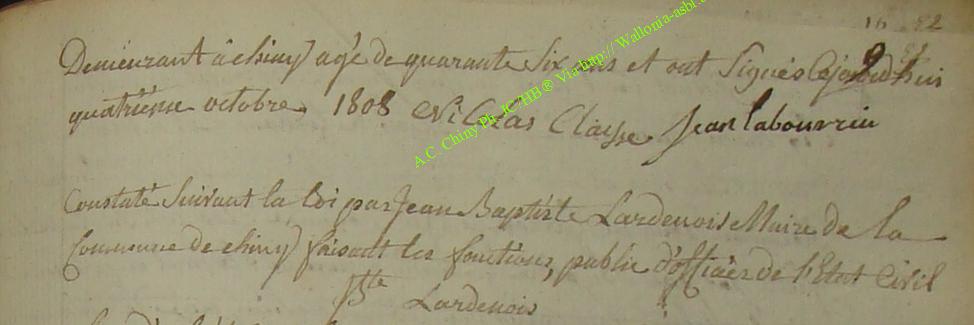 16 82
Demeurant à chiny agé de quarante Six ans et ont Signés Cejourd'huis
quatrième octobre 1808 Nicolas Claisse Jean Labourriu
Constaté Suivant la loi par Jean Baptiste Lardenois Maire de la
Commune de chiny faisant les fonctions, public d'officier de l'Etat Civil
JBte Lardenois
A.C. Chiny Ph. JC7HB® Via http:// Wallonia-asbl